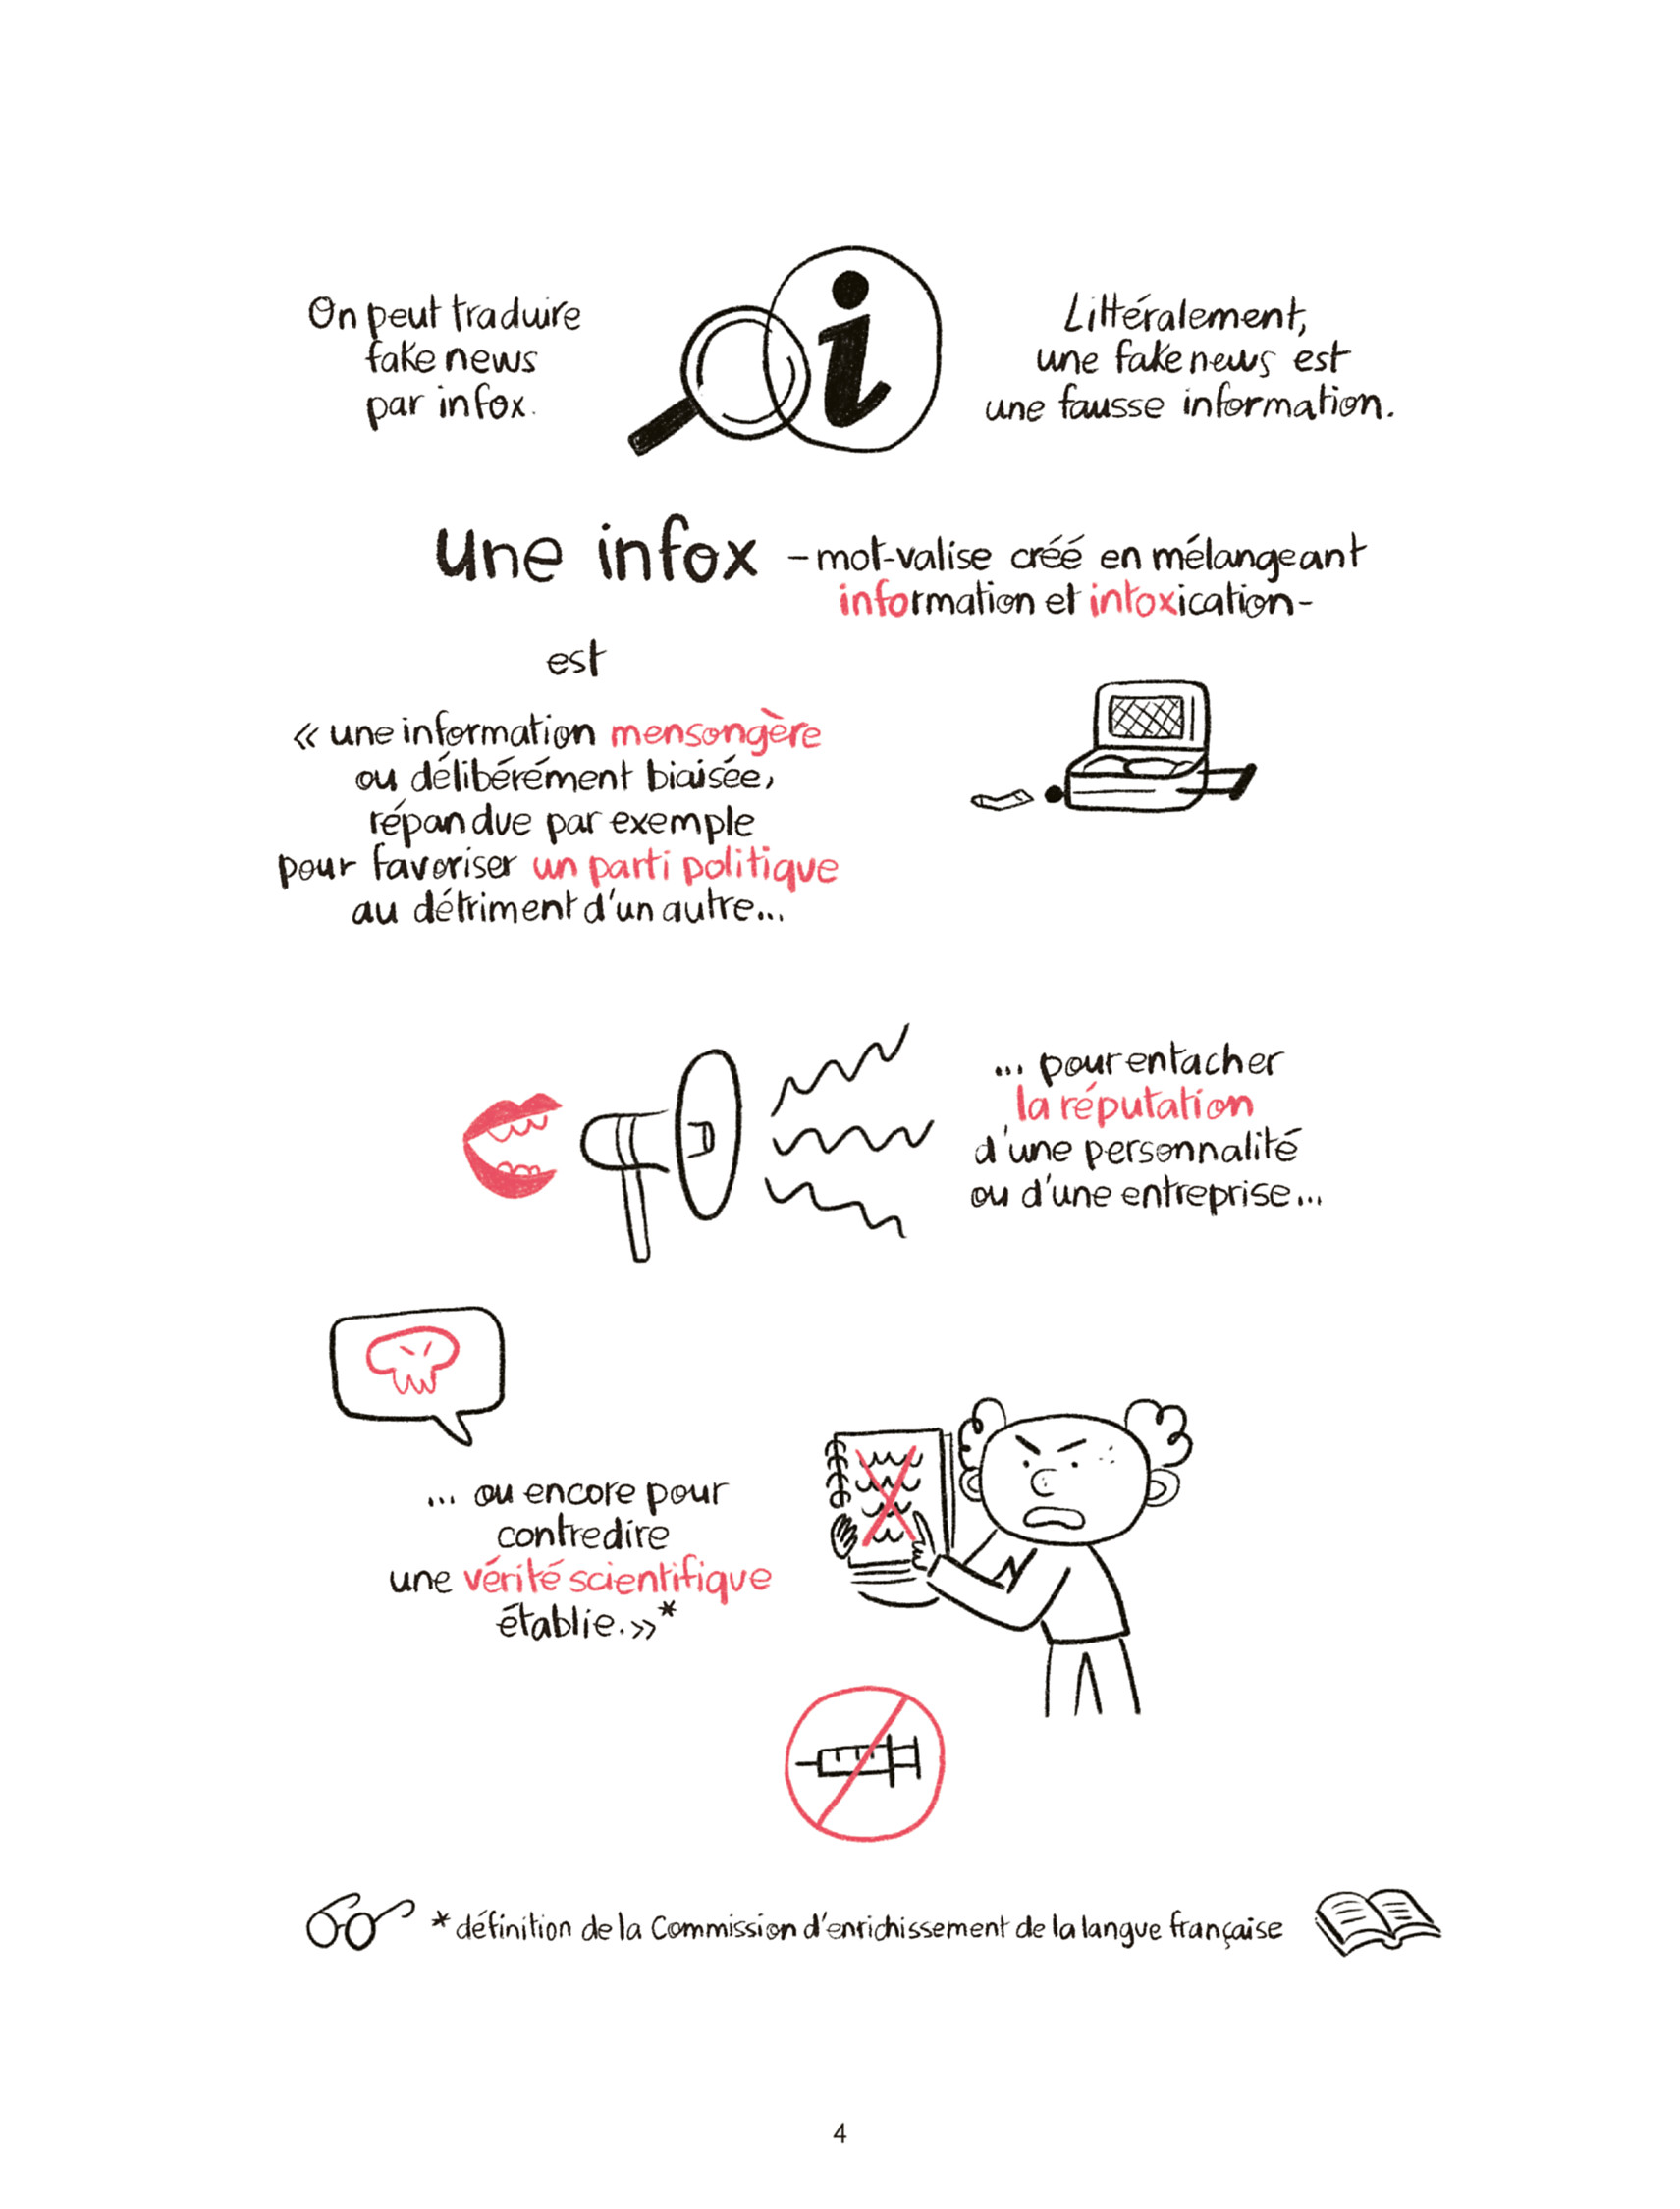 On peut traduire
fake news
par infox.
Littéralement,
une fake news est
une fausse information.
une infox – mot-valise créé en mélangeant
information et intoxication –
est
« une information mensongère
ou délibérément biaisée,
répandue par exemple
pour favoriser un parti politique
au détriment d'un autre...
... pour entacher
la réputation
d'une personnalité
ou d'une entreprise...
... ou encore pour
contredire
une vérité scientifique
établie. »*
* définition de la Commission d'enrichissement de la langue française
4